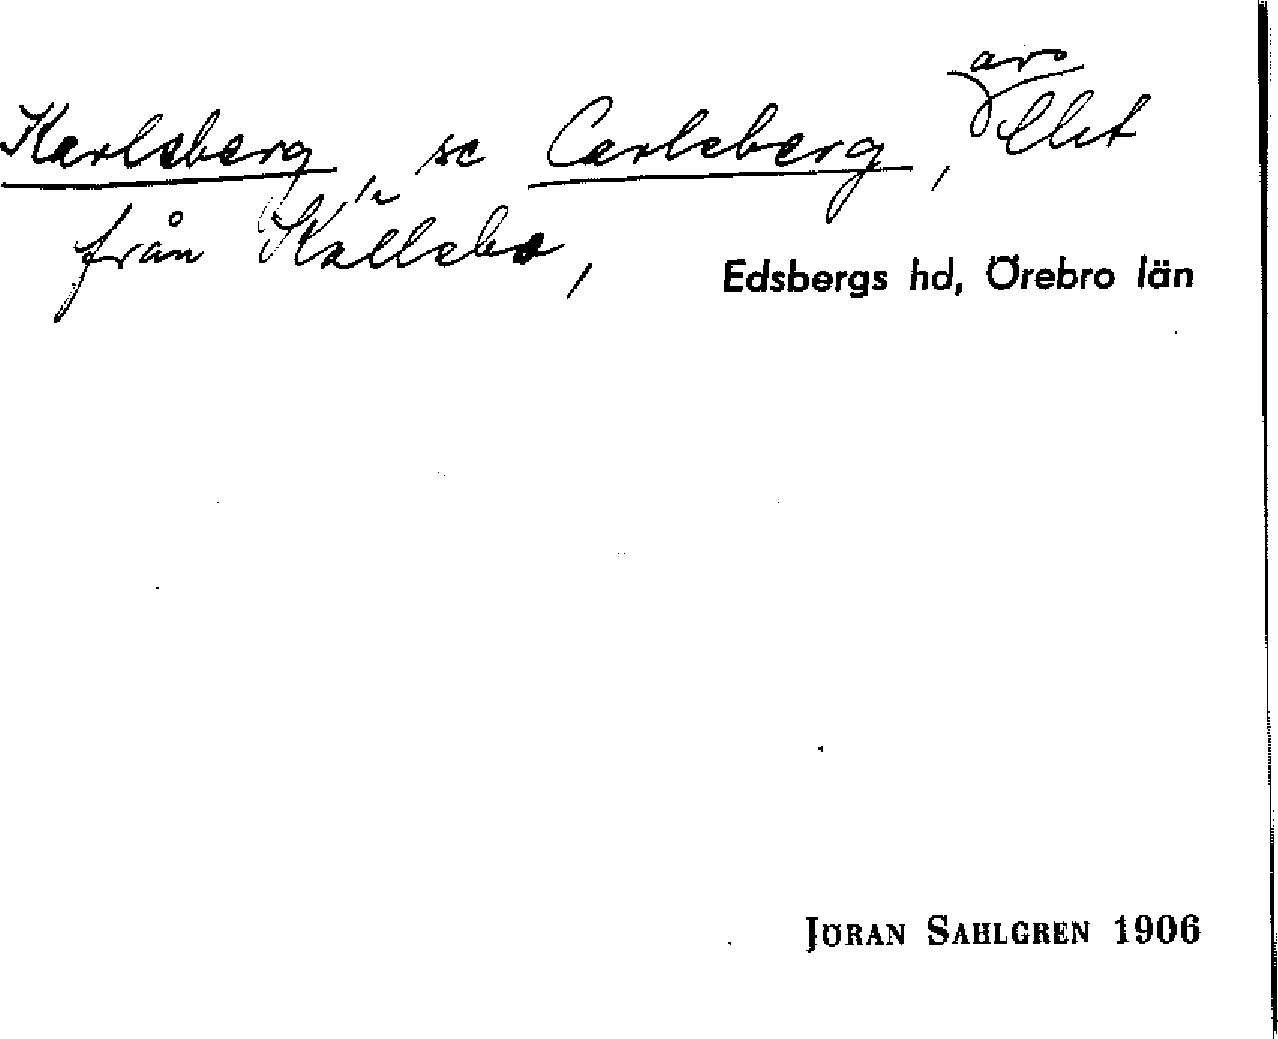 Karlsberg, se Carlsberg,
från Källsbo, Edsbergs hd, Örebro län
JÖRAN SAHLGREN 1906